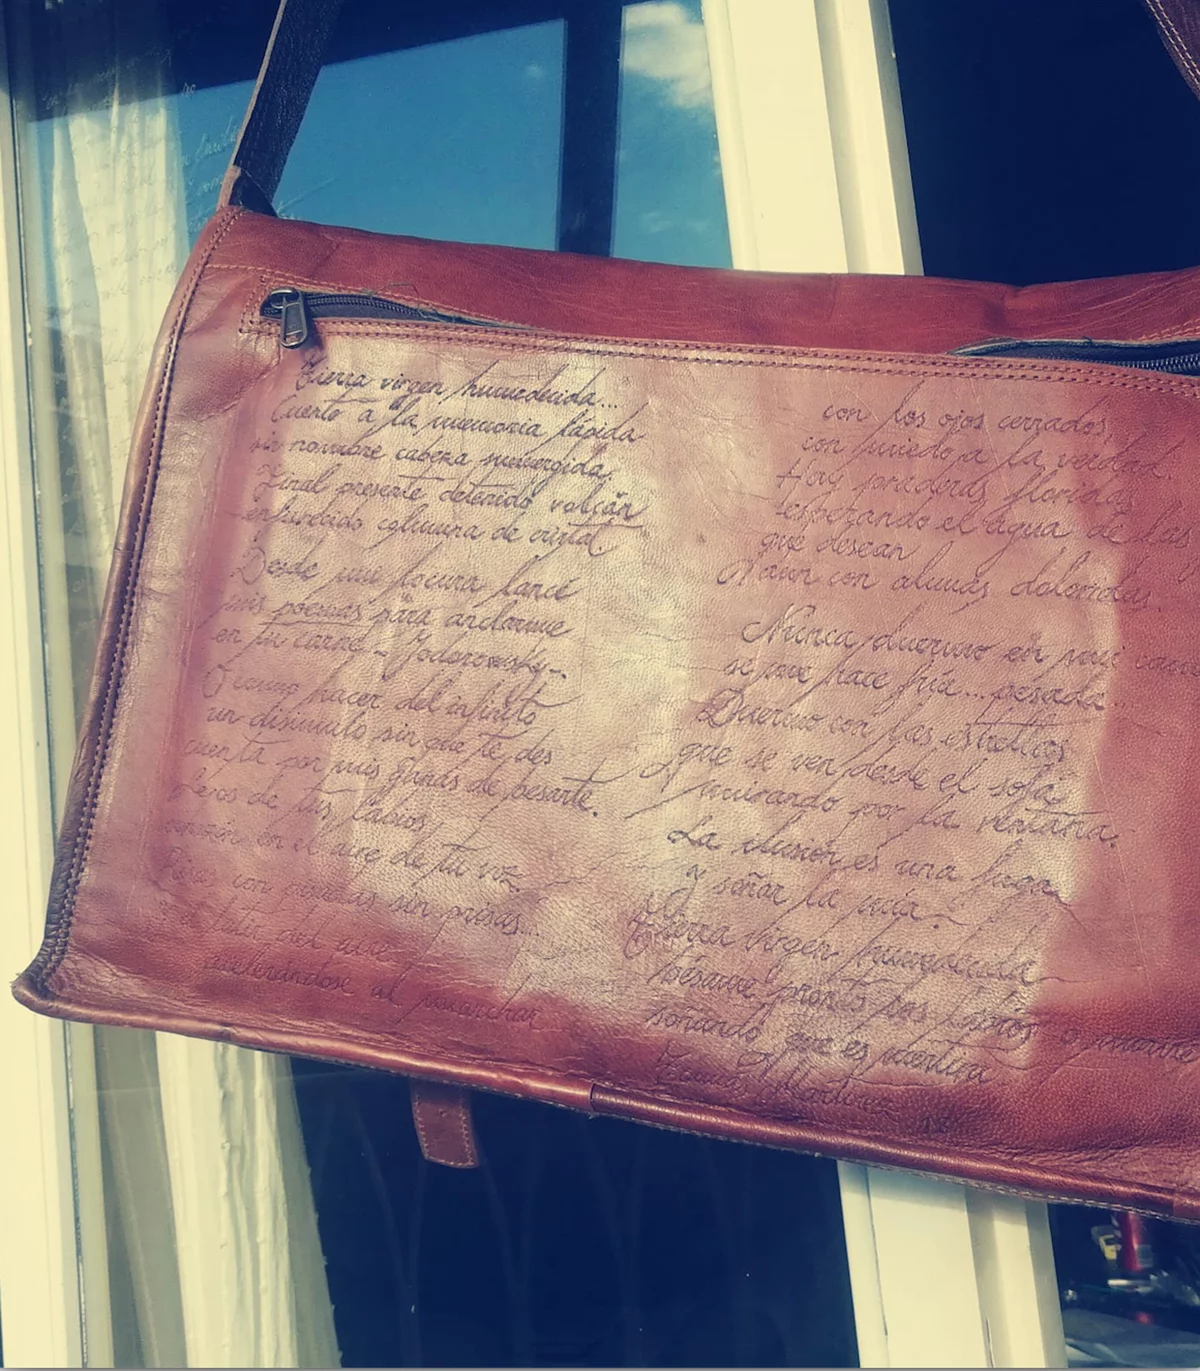 Tierra virgen humedecida...
Cuerto a la memoria lápida
sin nombre cabeza sumergida,
Final presente detenido volcán
enfurecido columna de cristal.
Desde mi locura lancé
mis poemas para anclarme
en tu carne - Jodorowsky -.
O como hacer del infinito
un disimulo sin que te des
cuenta por mis ganas de besarte.
Leros de tus labios,
en el aire de tu voz.
Risas con pisadas sin prisas...
del aire
acelerándose al marchar
con los ojos cerrados,
con miedo a la verdad.
Hay praderas floridas
esperando el agua de las
que desean
Y aun con almas doloridas.
Nunca duermo en mi cama
se me hace fría... pesada...
Duermo con las estrellas
que se ven desde el sofá
mirando por la ventana.
La ilusión es una fuga
y soñar la mía.
Tierra virgen humedecida
bésame pronto
soñando que es mentira
Martínez